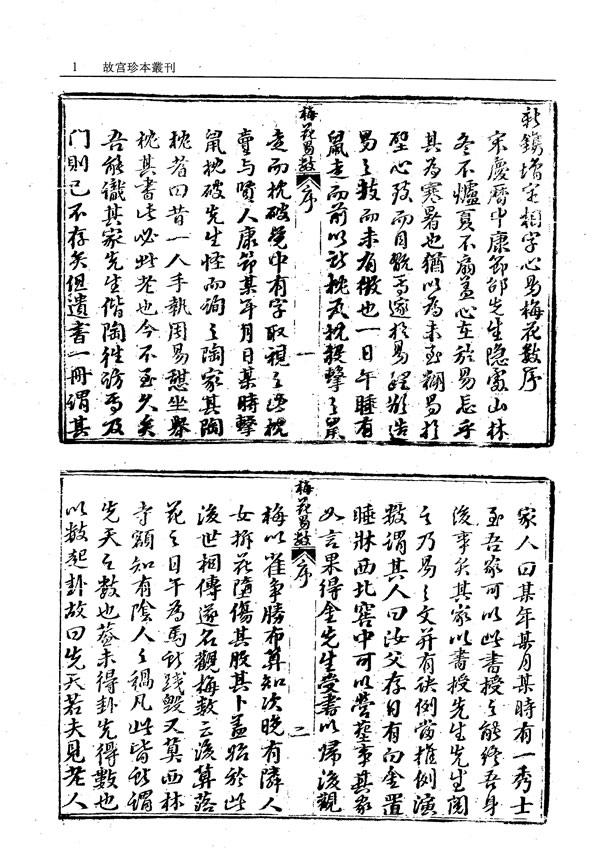 1 故宫珍本叢刊
新鐫增定相字心易梅花數序
宋慶曆中康節邵先生隱處山林
冬不爐夏不扇蓋心在於易忘乎
其為寒暑也猶以為未至糊易於
壁心致而目翫焉邃於易理欲造
易之數而未有徵也一日午睡有
鼠走而前以所枕瓦枕投擊之鼠
梅花易數 序 一
走而枕破覺中有字取視之此枕
賣与賢人康節某年月日某時擊
鼠枕破先生怪而詢之陶家其陶
枕者曰昔一人手執周易憩坐舉
枕其書此必此老也今不至久矣
吾能識其家先生偕陶往訪焉及
门則已不存矣但遺書一冊謂其
家人曰某年某月某時有一秀士
至吾家可以此書授之能終吾身
後事矣其家以書授先生先生閱
之乃易之文并有訣例當推例演
數謂其人曰汝父存日有白金置
睡牀西北窖中可以營葬事其家
如言果得金先生受書以歸後觀
梅花易數 序 二
梅以雀爭勝布算知次晚有隣人
女折花墮傷其股其卜蓋始於此
後世相傳遂名觀梅數云後算落
花之日午為馬所踐毀又算西林
寺額知有陰人之禍凡此皆所謂
先天之數也蓋未得卦先得數也
以數起卦故曰先天若夫見老人